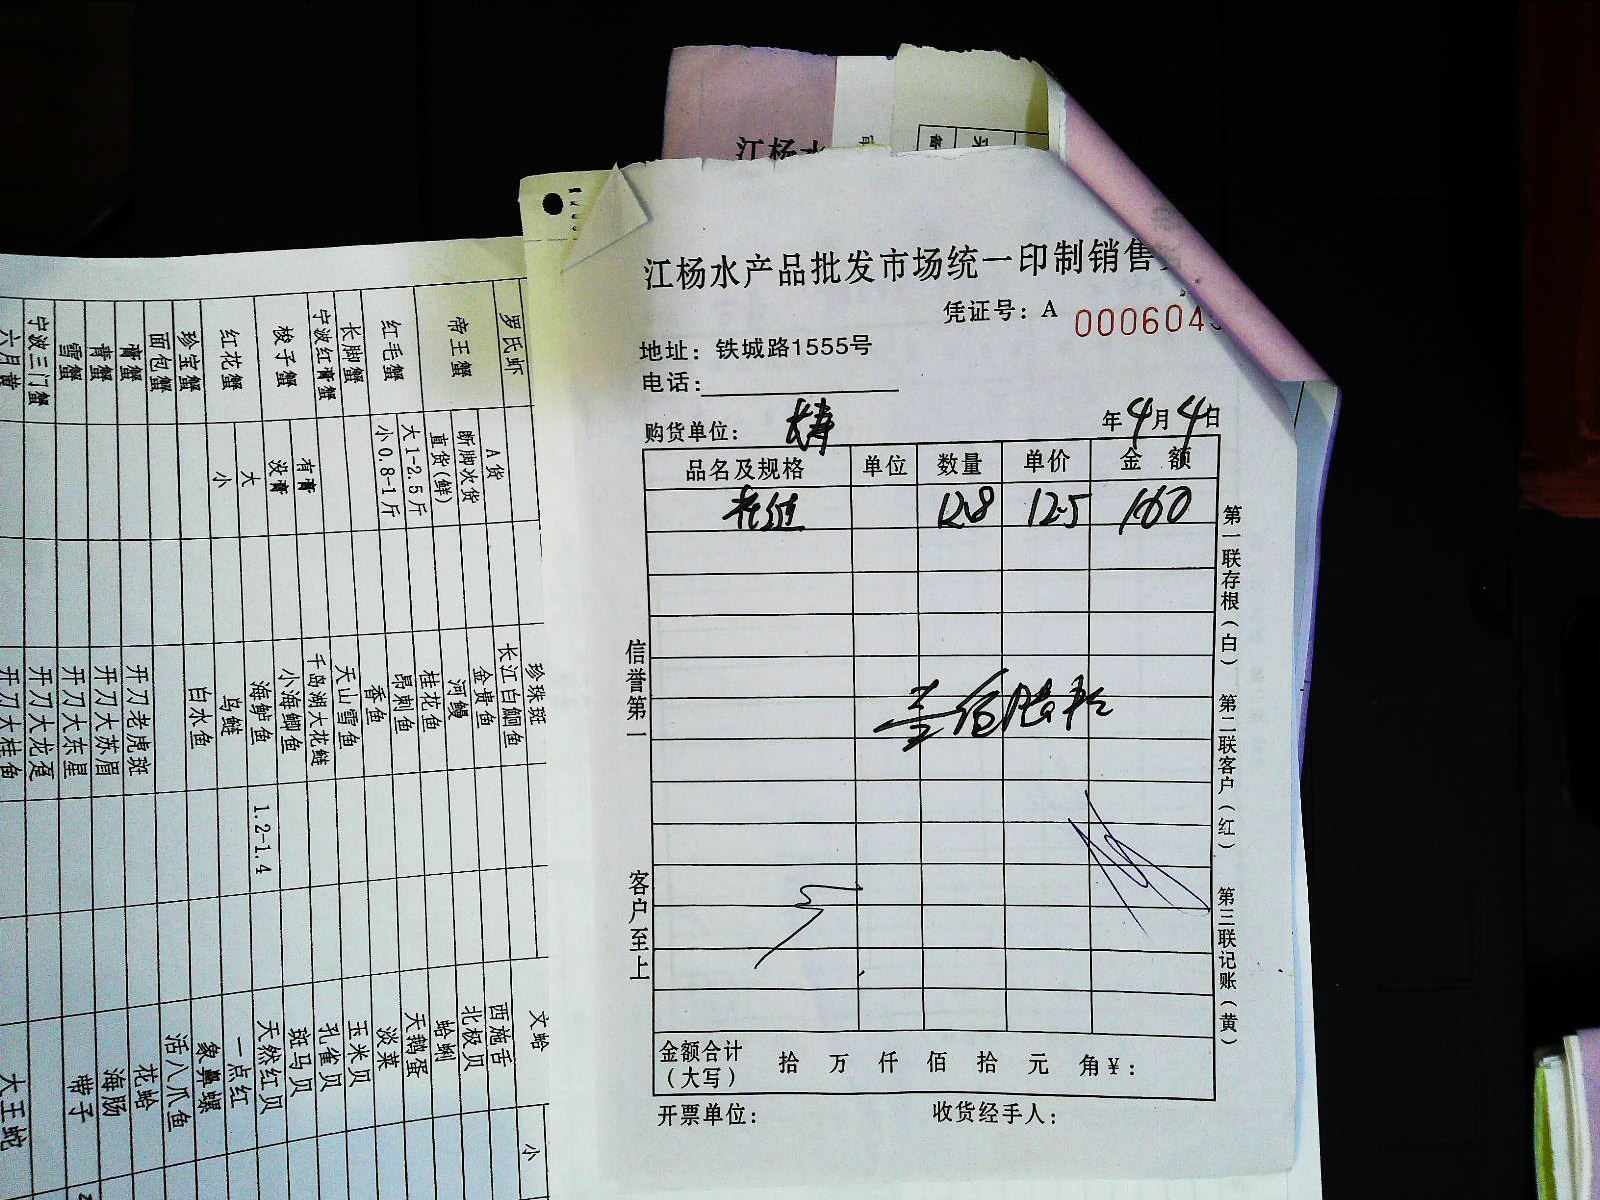 江杨水
江杨水产品批发市场统一印制销售
凭证号：A 000604
地址：铁城路1555号
电话：
购货单位：
年4月4日
品名及规格 单位 数量 单价 金 额
12.8 12.5 160
信誉第一
客户至上
第一联存根（白） 第二联客户（红） 第三联记账（黄）
金额合计（大写） 拾 万 仟 佰 拾 元 角¥：
开票单位： 收货经手人：
罗氏虾
帝王蟹 A货
断脚次货
直货(鲜)
红毛蟹 大1-2.5斤
小0.8-1斤
长脚蟹
宁波红膏蟹
梭子蟹 有膏
没膏
红花蟹 大
小
珍宝蟹
面包蟹
膏蟹
青蟹
雪蟹
宁波三门蟹
六月黄
珍珠斑
长江白鮰鱼
金贵鱼
河鳗
桂花鱼
昂刺鱼
香鱼
天山雪鱼
千岛湖大花鲢
小海鲫鱼
海鲈鱼 1.2-1.4
乌鲢
白水鱼
开刀老虎斑
开刀大苏眉
开刀大东星
开刀大龙趸
开刀大桂鱼
文蛤 小
西施舌
北极贝
蛤蜊
天鹅蛋
淡菜
玉米贝
孔雀贝
斑马贝
天然红贝
一点红
象鼻螺
活八爪鱼
花蛤
海肠
带子
大王蛇